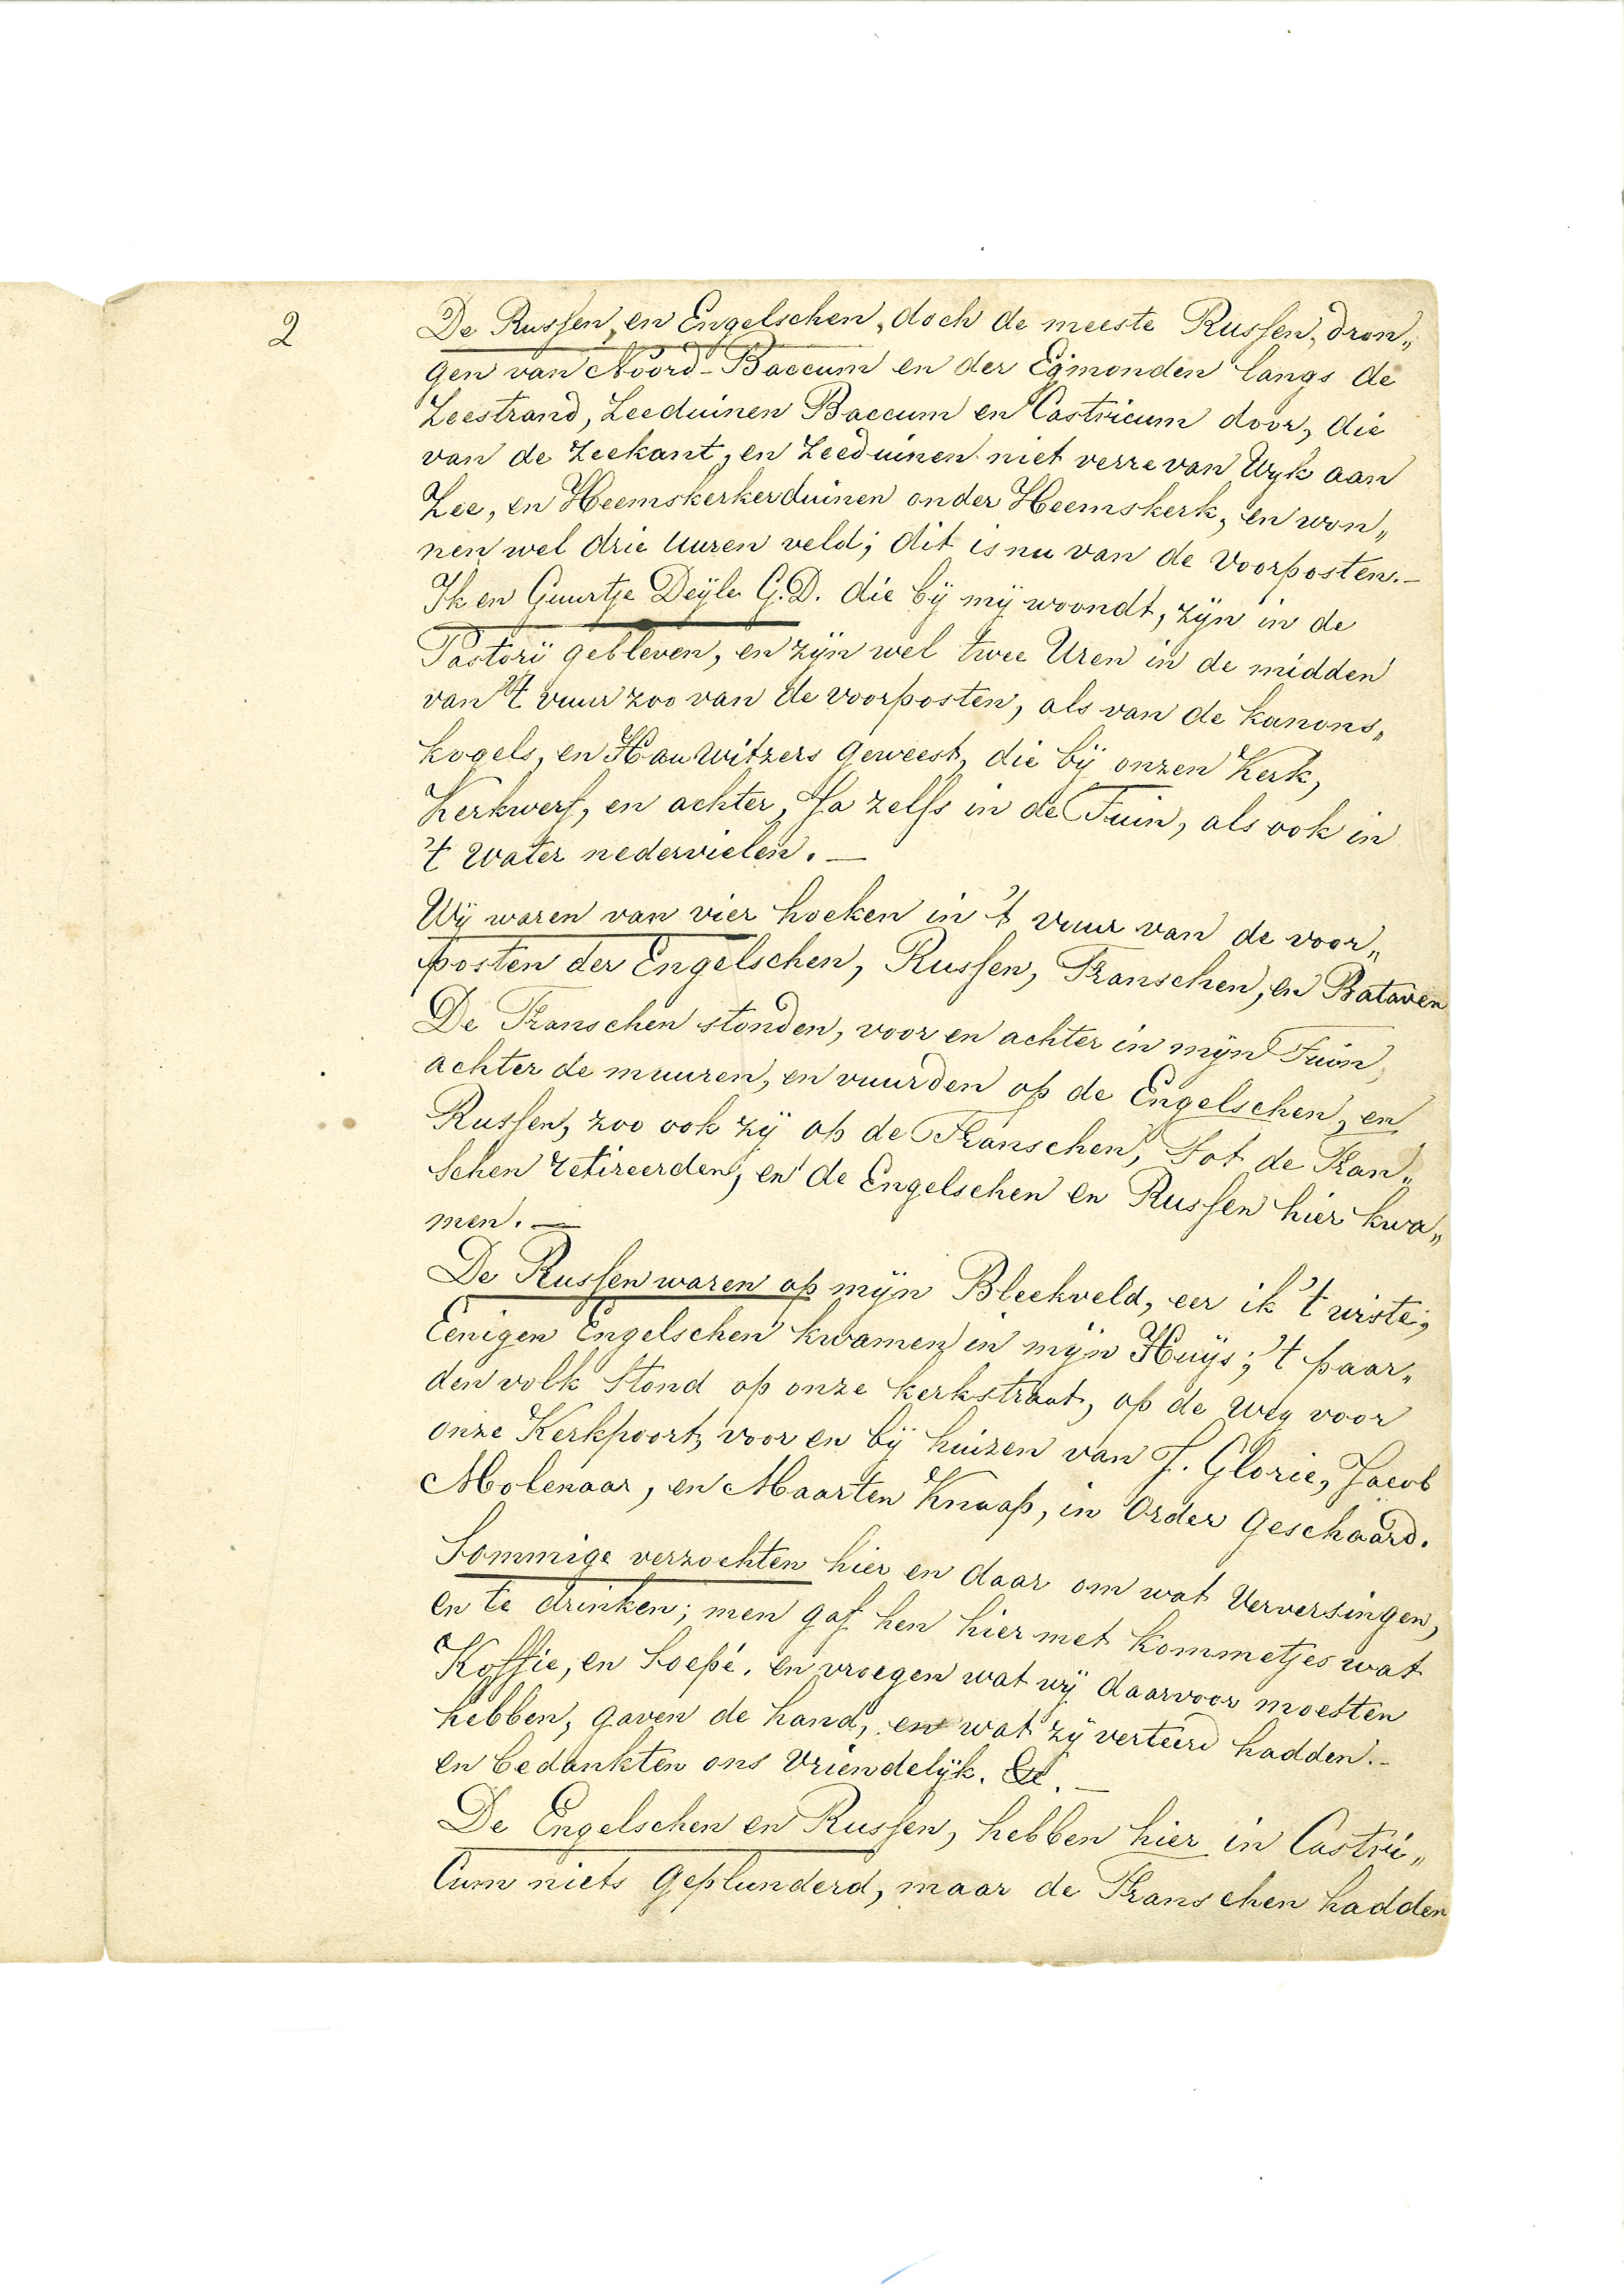 2
De Russen, en Engelschen, doch de meeste Russen, dron„
gen van Noord-Baccum en der Egmonden langs de
Zeestrand, Zeeduinen Baccum en Castricum door, die
van de Zeekant, en Zeeduinen niet verre van Wyk aan
Zee, en Heemskerkerduinen onder Heemskerk, en won„
nen wel drie Uuren veld; dit is nu van de Voorposten.—
Ik en Guurtje Deÿle G.D. die bÿ mÿ woondt, zÿn in de
Pastorÿ gebleven, en zÿn wel twee Uren in de midden
van 't vuur zoo van de voorposten, als van de kanons„
kogels, en Hauwitzers geweest, die bÿ onzen Kerk,
Kerkwerf, en achter, Ja zelfs in de Tuin, als ook in
't Water nedervielen.—
Wÿ waren van vier hoeken in 't vuur van de voor„
posten der Engelschen, Russen, Franschen, en Bataven
De Franschen stonden, voor en achter in mÿn Tuin,
achter de muuren, en vuurden op de Engelschen, en
Russen, zoo ook zÿ op de Franschen, Tot de Fran„
schen retireerden, en de Engelschen en Russen hier kwa„
men.—
De Russen waren op mÿn Bleekveld, eer ik 't wiste,
Eenigen Engelschen kwamen in mÿn Huÿs; 't paar„
den volk Stond op onze kerkstraat, op de weg voor
onze Kerkpoort, voor en bÿ huizen van J. Glorie, Jacob
Molenaar, en Maarten Knaap, in Order geschaard.
Sommige verzochten hier en daar om wat Verversingen,
en te drinken; men gaf hen hier met kommetjes wat
Koffie, en Soepé. en vroegen wat wÿ daarvoor moesten
hebben, gaven de hand, en wat zÿ verteerd hadden.—
en bedankten ons Vriendelÿk. &c.—
De Engelschen en Russen, hebben hier in Castri„
Cum niets geplunderd, maar de Franschen hadden